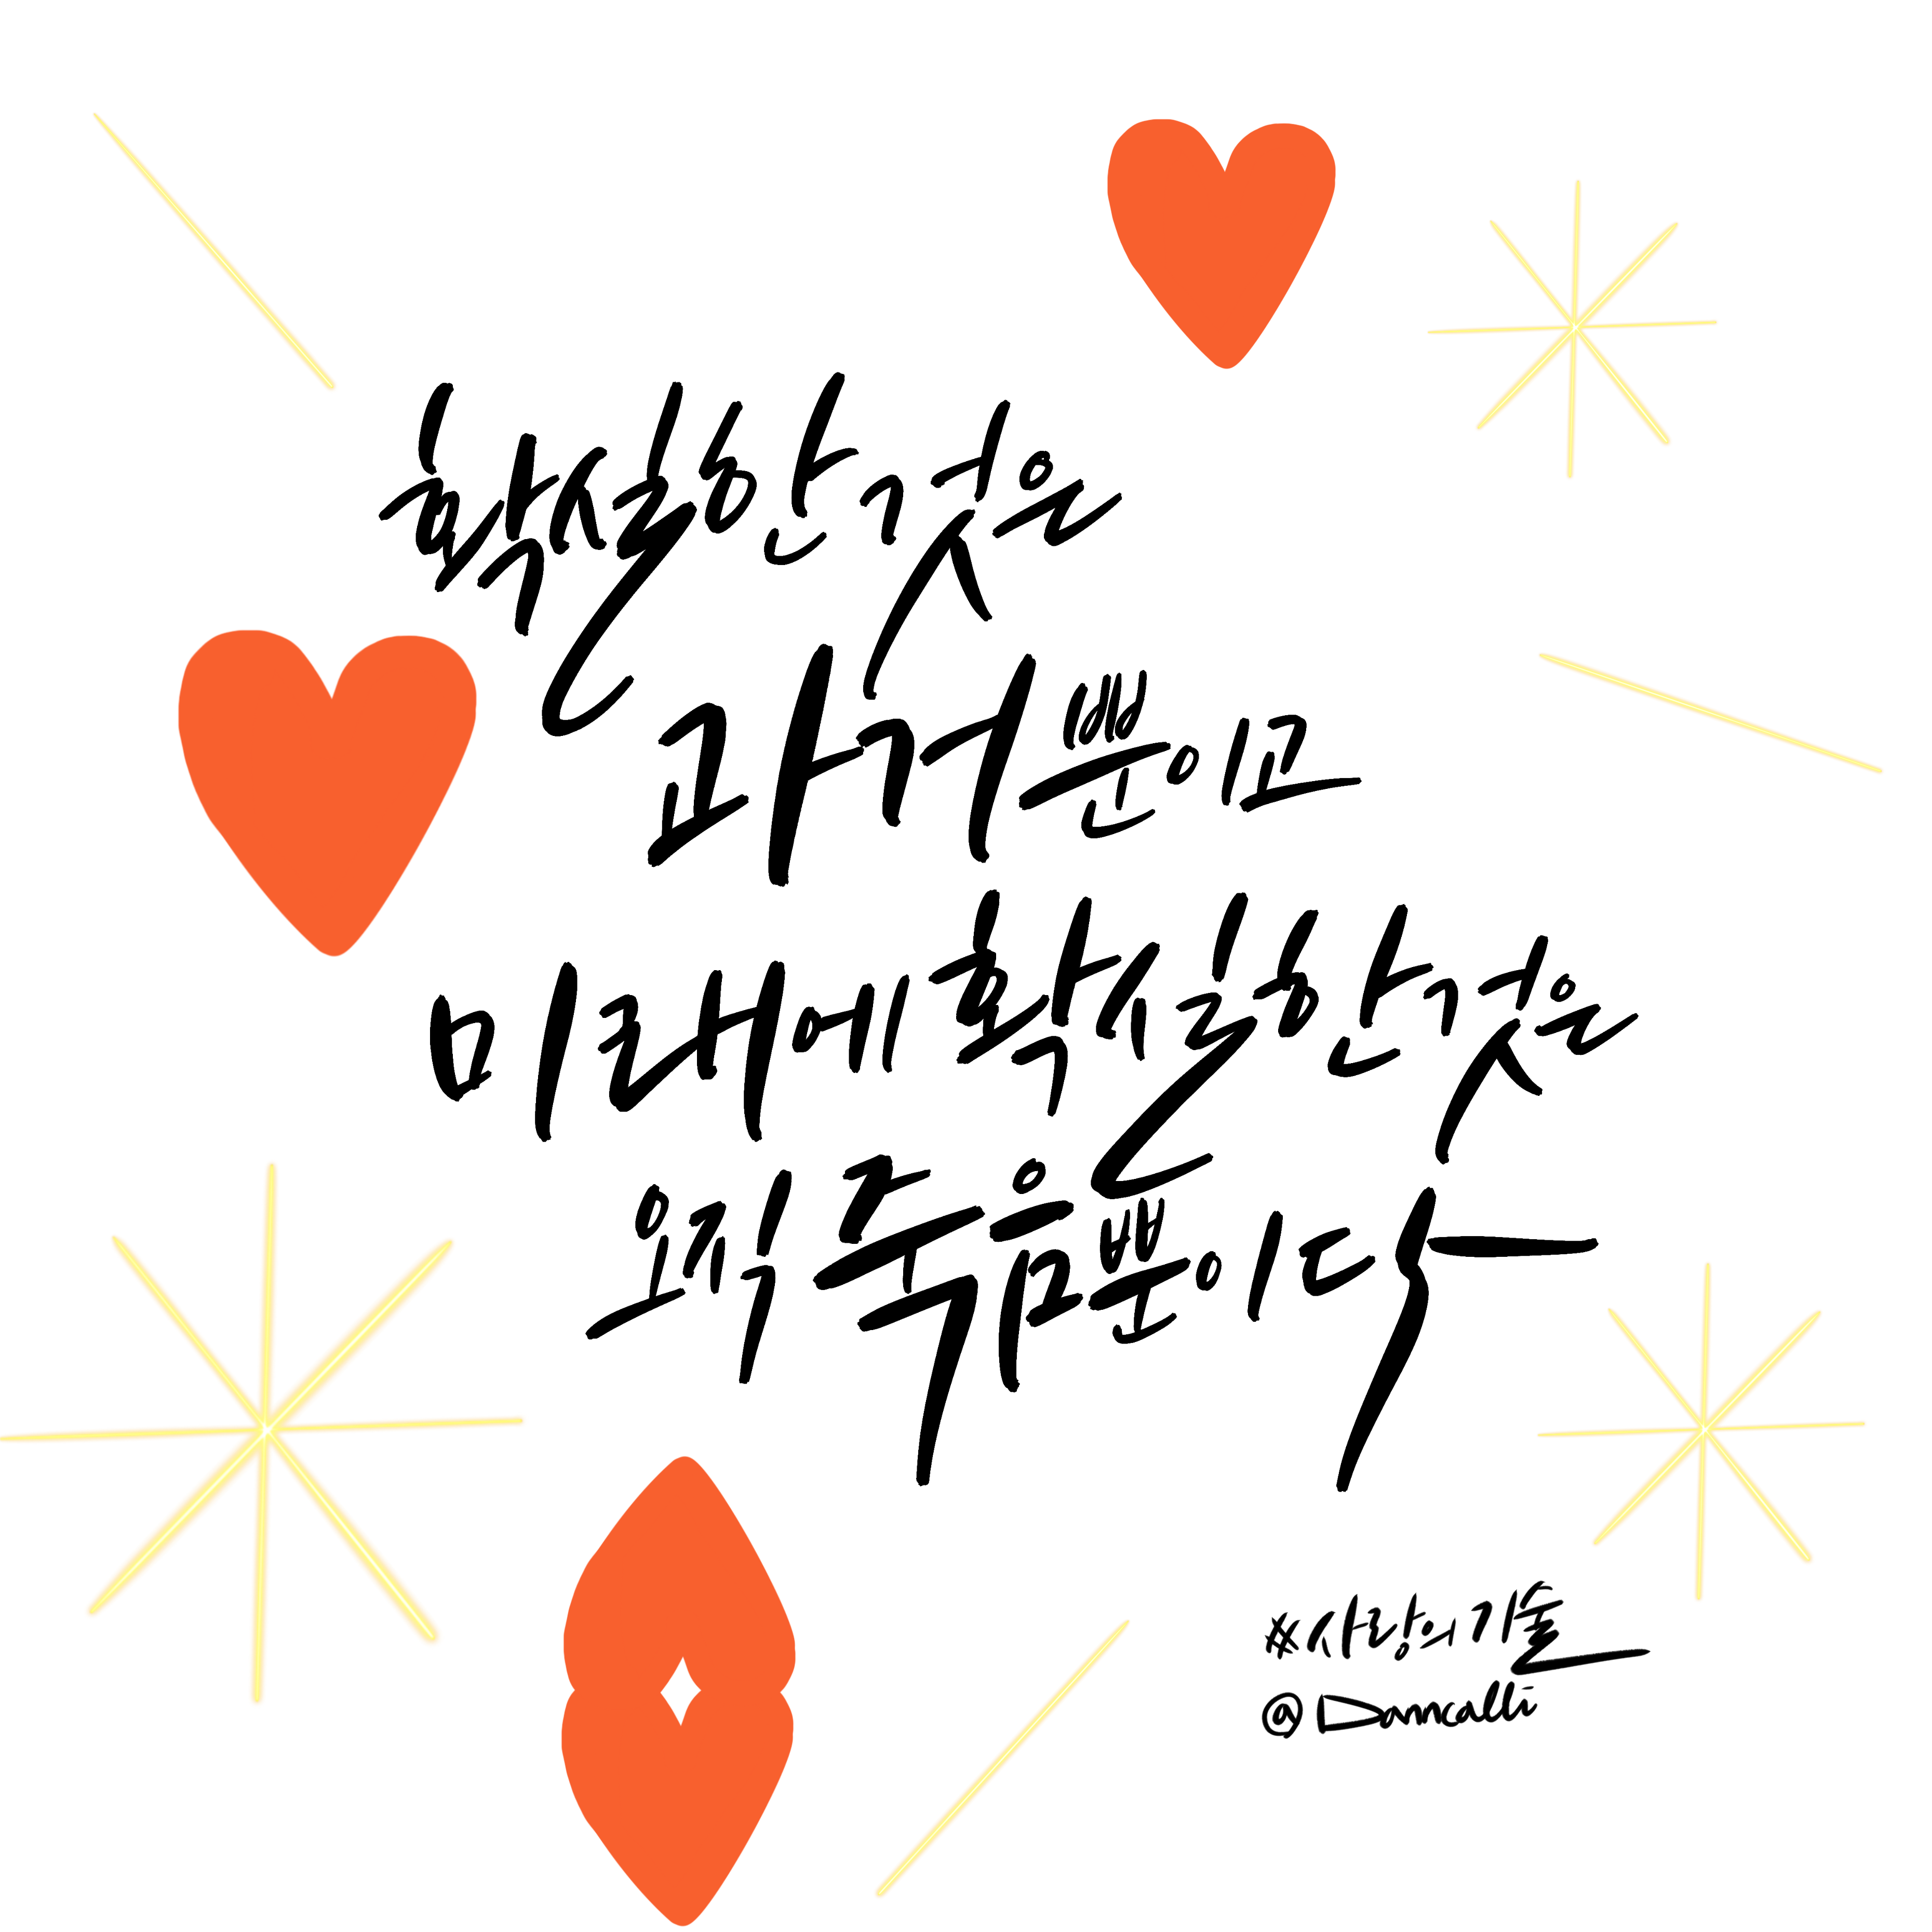 확실한 것은
과거뿐이고
미래에 확실한 것은
오직 죽음뿐이다
※사랑의 기술
@Damcalli